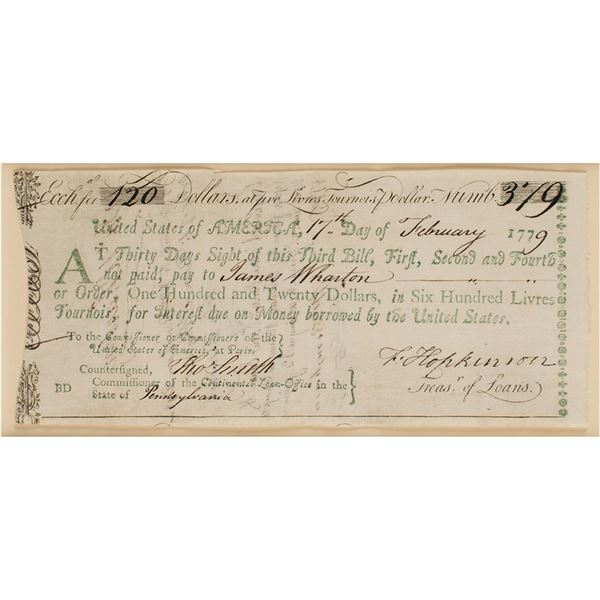 Exchᵃ for 120 Dollars, at five Livres Tournois ⅌ Dollar. Numb. 379
United States of AMERICA, 17th Day of February 1779
AT Thirty Days Sight of this Third Bill, First, Second and Fourth
not paid, pay to James Wharton
or Order, One Hundred and Twenty Dollars, in Six Hundred Livres
Tournois, for Interest due on Money borrowed by the United States.
To the Commissioner or Commissioners of the
United States of America, at Paris.
F. Hopkinson
Countersigned, Tho Smith
Treasr. of Loans.
BD Commissioner of the Continental Loan-Office in the
State of Pennsylvania